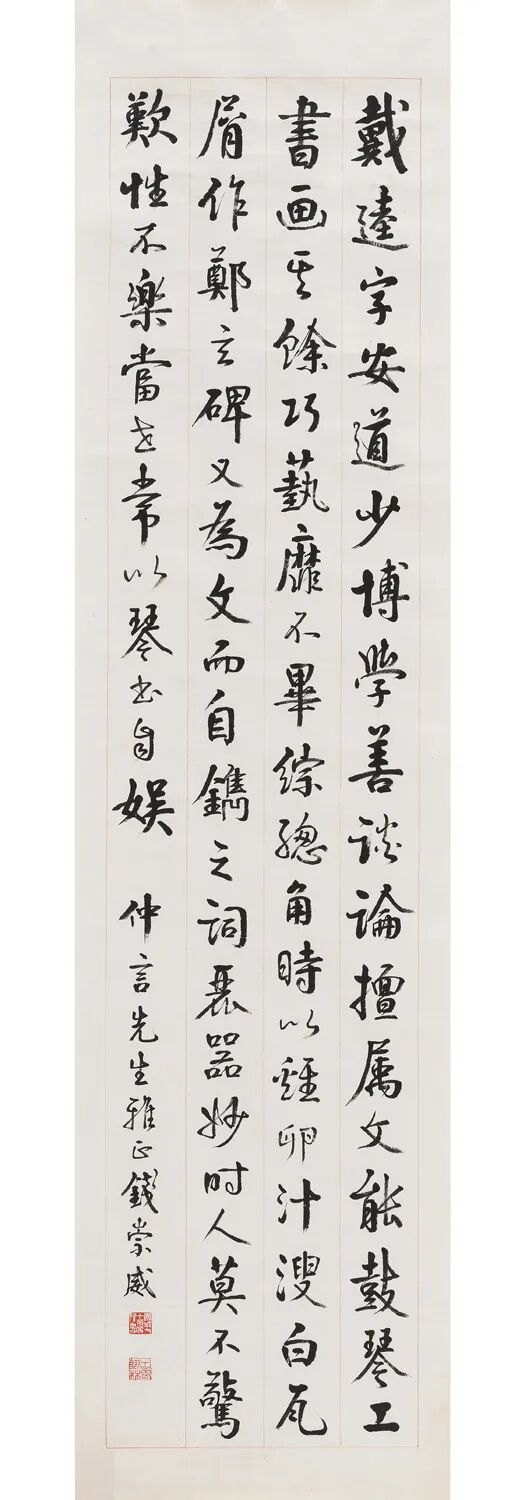 戴逵字安道少博學善談論擅属文能鼓琴工
書画其餘巧藝靡不畢綜總角時以雞卵汁溲白瓦
屑作鄭玄碑又為文而自鐫之詞麗器妙时人莫不驚
歎性不樂當世常以琴书自娱 仲言先生雅正錢崇威